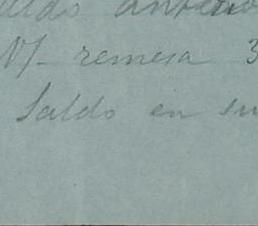 aldo anterio
N/ remesa 3
Saldo en su